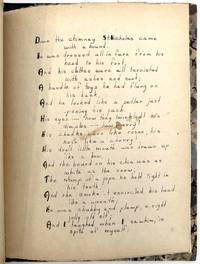 Down the chimney St Nicholas came
with a bound.
He was dressed all in furs from his
head to his foot,
And his clothes were all tarnished
with ashes and soot;
A bundle of toys he had flung on
his back,
And he looked like a pedlar just
opening his pack.
His eyes — how they twinkled! His
dimples
His cheeks were like roses, his
nose like a cherry!
His droll little mouth was drawn up
like a bow,
And the beard on his chin was as
white as the snow,
The stump of a pipe he held tight in
his teeth
And the smoke it encircled his head
like a wreath;
He was chubby and plump, a right
jolly old elf;
And I laughed when I saw him, in
spite of myself;